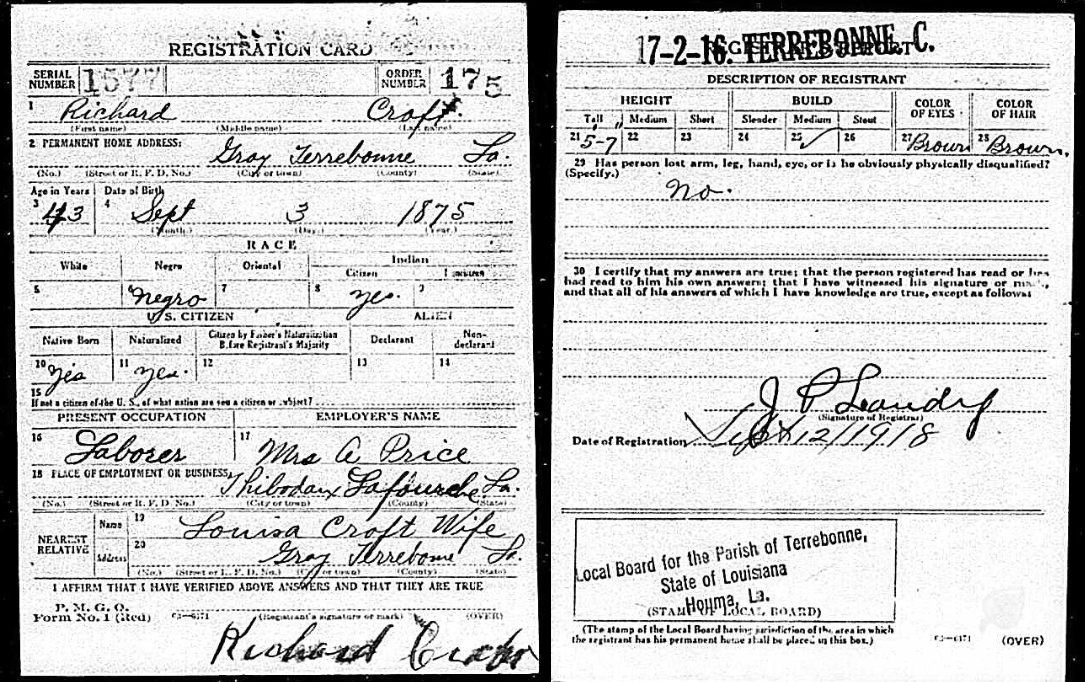 REGISTRATION CARD
SERIAL NUMBER 1577 ORDER NUMBER 175
1 Richard Croft
(First name) (Middle name) (Last name)
2 PERMANENT HOME ADDRESS:
Gray Terrebonne La.
(No.) (Street or R. F. D. No.) (City or town) (County) (State)
Age in Years Date of Birth
3 43 4 Sept 3 1875
(Month.) (Day.) (Year.)
RACE
White Negro Oriental Indian
Citizen Noncitizen
5 6 Negro 7 8 Yes. 9
U.S. CITIZEN ALIEN
Native Born Naturalized Citizen by Father's Naturalization Before Registrant's Majority Declarant Non-declarant
10 Yes 11 Yes. 12 13 14
15
If not a citizen of the U. S., of what nation are you a citizen or subject?
PRESENT OCCUPATION EMPLOYER'S NAME
16 Laborer 17 Mrs A Price
18 PLACE OF EMPLOYMENT OR BUSINESS:
Thibodaux Lafourche La.
(No.) (Street or R. F. D. No.) (City or town) (County) (State)
NEAREST RELATIVE Name 19 Louisa Croft Wife
Address 20 Gray Terrebone La.
(No.) (Street or R. F. D. No.) (City or town) (County) (State)
I AFFIRM THAT I HAVE VERIFIED ABOVE ANSWERS AND THAT THEY ARE TRUE
P. M. G. O.
Form No. 1 (Red) 03—6171 (Registrant's signature or mark) (OVER)
Richard
REGISTRAR'S REPORT
17-2-16. TERREBONNE, C.
DESCRIPTION OF REGISTRANT
HEIGHT BUILD COLOR OF EYES COLOR OF HAIR
Tall Medium Short Slender Medium Stout
21 5-7 22 23 24 25 ✓ 26 27 Brown 28 Brown.
29 Has person lost arm, leg, hand, eye, or is he obviously physically disqualified?
(Specify.)
No.
30 I certify that my answers are true; that the person registered has read or has
had read to him his own answers; that I have witnessed his signature or mark,
and that all of his answers of which I have knowledge are true, except as follows:
J P Landry
(Signature of Registrar)
Date of Registration Sept 12/1918
Local Board for the Parish of Terrebonne,
State of Louisiana
Houma, La.
(STAMP OF LOCAL BOARD)
(The stamp of the Local Board having jurisdiction of the area in which
the registrant has his permanent home shall be placed in this box.)
03—6171 (OVER)